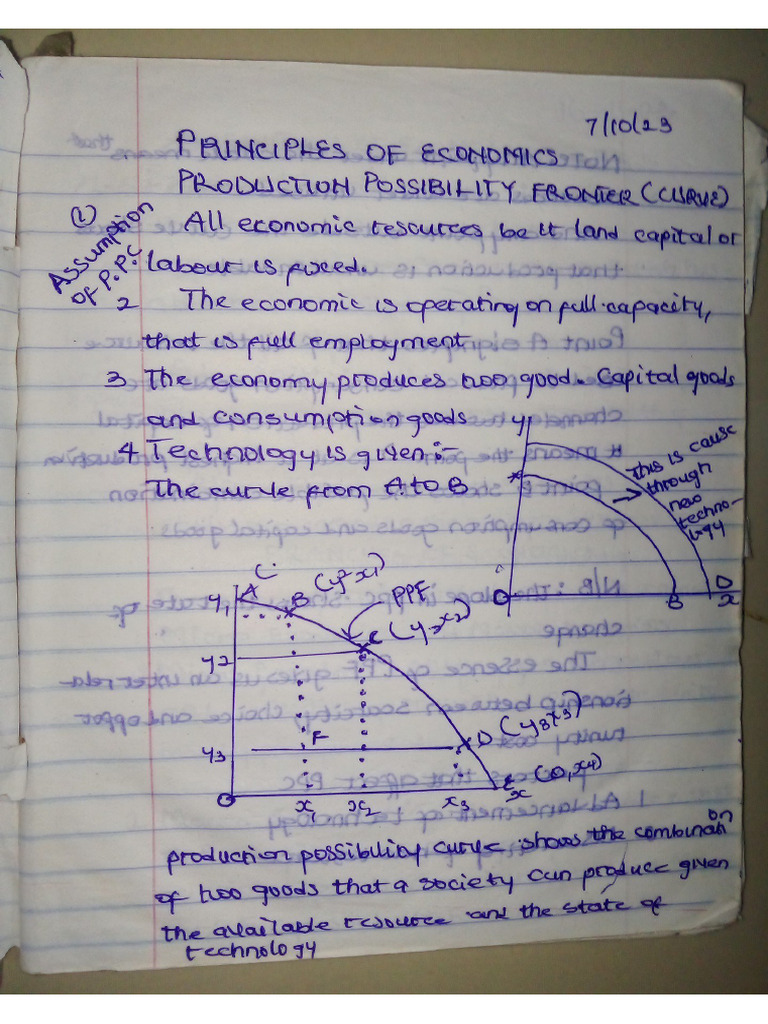 7/10/23
PRINCIPLES OF ECONOMICS
PRODUCTION POSSIBILITY FRONTER (CURVE)
Assumption
of P.P.C
(1) All economic resources be it land capital or
labour is fixed.
2 The economic is operating on full capacity,
that is full employment
3 The economy produces two good. Capital goods
and consumption goods
4 Technology is given :-
The curve from A to B
y
A
This is cause
through
new
techno-
logy
O
B
D
x
y1
A
B (y2 x1)
PPF
y2
C (y2 x2)
y3
F
D (y3 x3)
E (0, x4)
O
x1
x2
x3
x
production possibility curve shows the combination
of two goods that a society can produce given
the available resource and the state of
technology